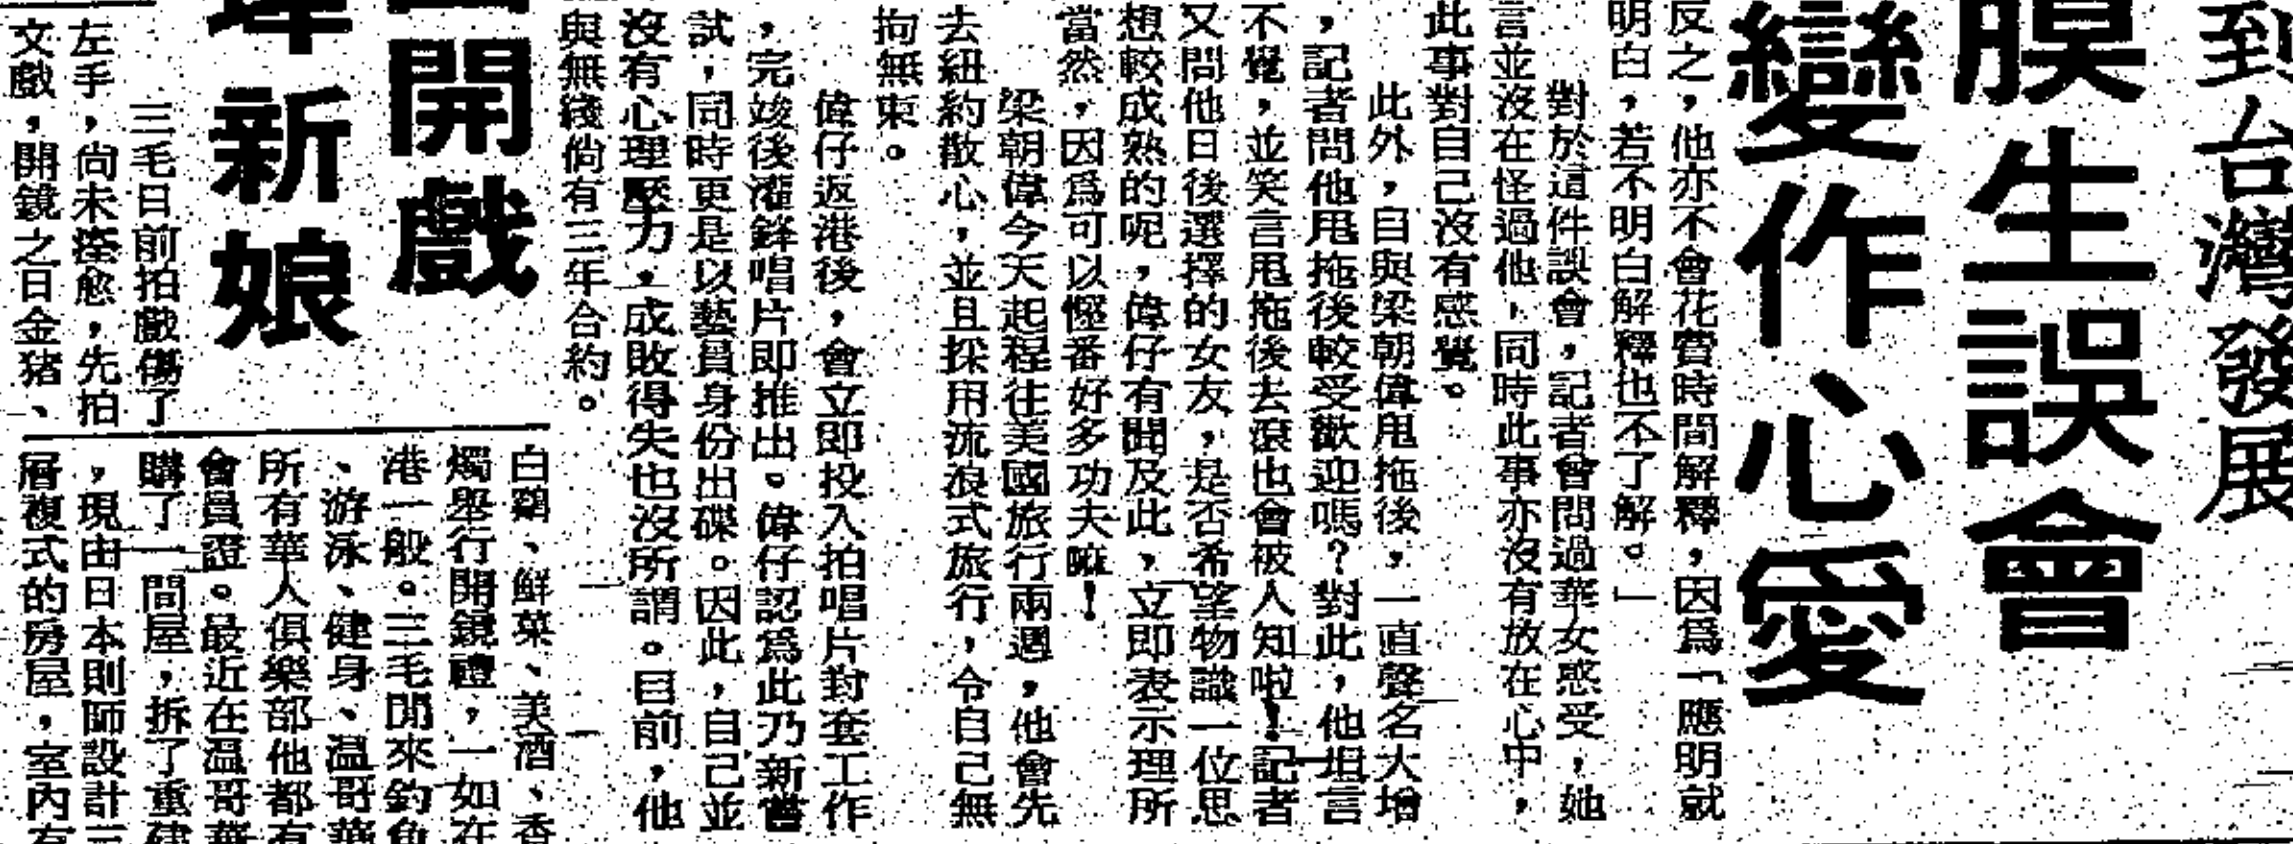 到台灣發展
膜生誤會
變作心愛
反之，他亦不會花費時間解釋，因爲「應明就
明白，若不明白解釋也不了解。」
對於這件誤會，記者會問過華女感受，她
言並沒在怪過他，同時此事亦沒有放在心中，
此事對自己沒有感覺。
此外，自與梁朝偉甩拖後，一直聲名大增
，記者問他甩拖後較受歡迎嗎？對此，他坦言
不覺，並笑言甩拖後去滾也會被人知啦！記者
又問他日後選擇的女友，是否希望物識一位思
想較成熟的呢，偉仔有聞及此，立即表示理所
當然，因爲可以慳番好多功夫嘛！
梁朝偉今天起程往美國旅行兩週，他會先
去紐約散心，並且採用流浪式旅行，令自己無
拘無束。
偉仔返港後，會立即投入拍唱片封套工作
，完竣後灌錄唱片即推出。偉仔認爲此乃新嘗
試，同時更是以藝員身份出碟。因此，自己並
沒有心理壓力，成敗得失也沒所謂。目前，他
與無綫倘有三年合約。
開戲
新娘
三毛日前拍戲傷了
左手，尚未痊愈，先拍
文戲，開鏡之日金猪、
白鷄、鮮菓、美酒、香
燭舉行開鏡禮，一如在
港一般。三毛閒來釣魚
、游泳、健身、温哥華
所有華人俱樂部他都有
會員證。最近在温哥華
購了一間屋，拆了重建
，現由日本則師設計三
層複式的房屋，室內有